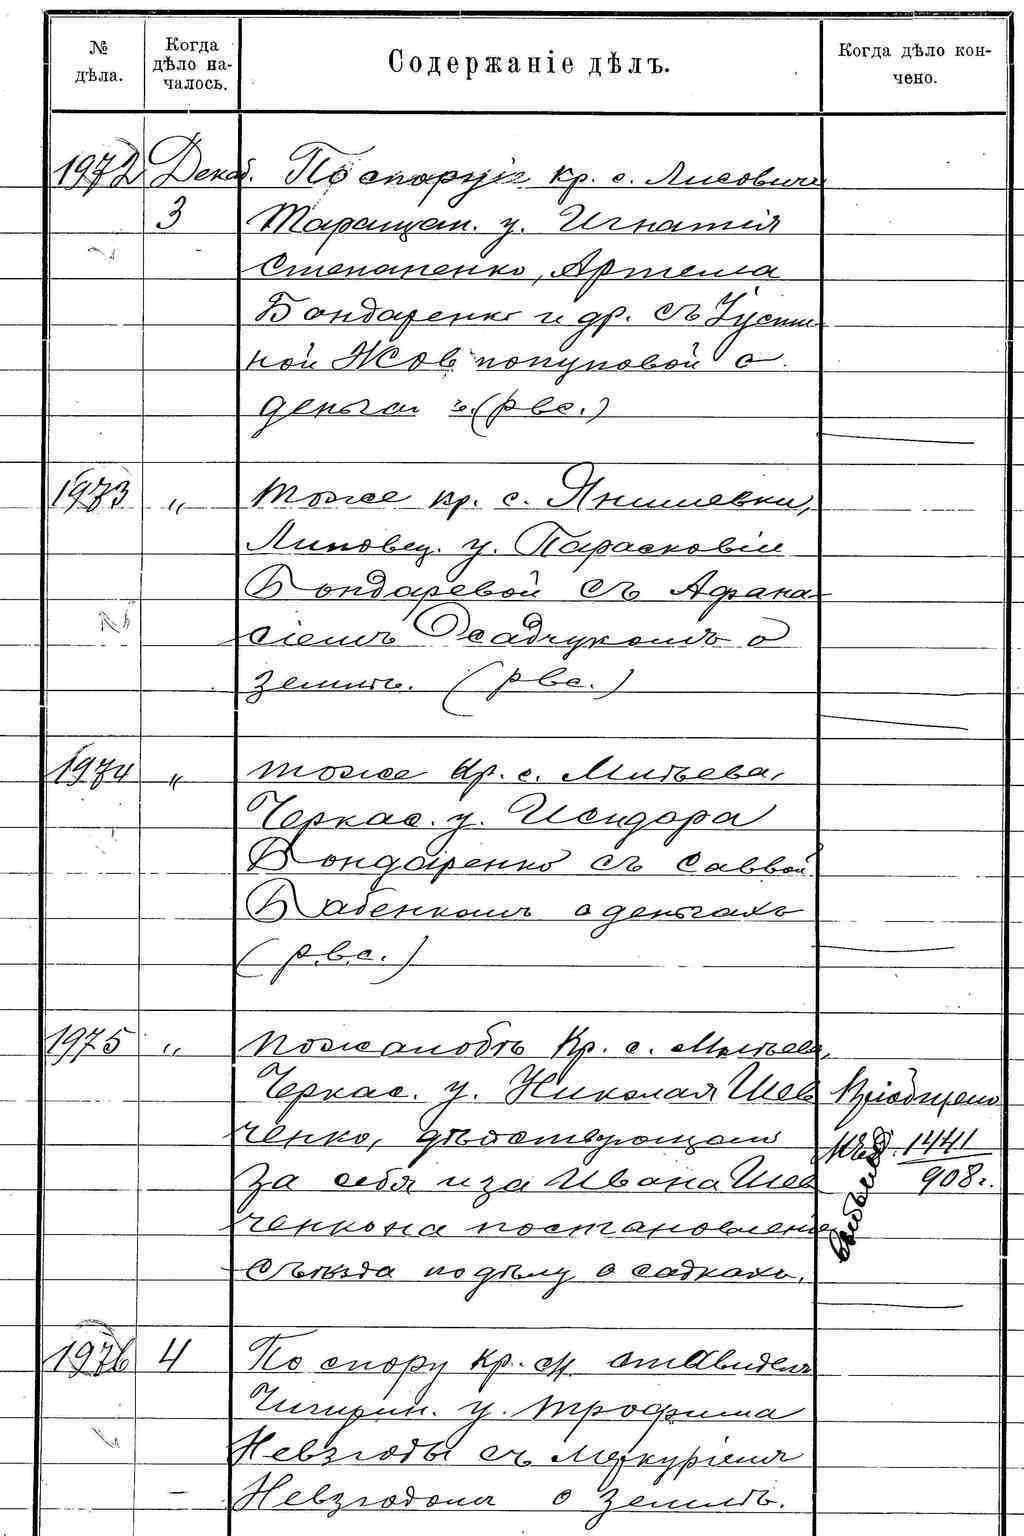 № дѣла. Когда дѣло на-чалось. Содержаніе дѣлъ. Когда дѣло кон-чено.
1972 Декаб. По спору кр. с. Лисовичи
3 Таращан. у. Игнатія
Степаненко, Артема
Бондаренко и др. съ Іусти
ной о
деньгахъ (рвс.)
1973 „ тоже кр. с. Янишевки,
Липовец. у. Парасковіи
Бондаревой съ Афана-
сіемъ Осадчукомъ о
землѣ. (рвс.)
1974 „ тоже кр. с. Млѣева,
Черкас. у. Исидора
Бондаренко съ Саввой
Бабенкомъ о деньгахъ
(р.в.с.)
1975 „ по жалобѣ кр. с. Млѣева,
Черкас. у. Николая Шев Пріобщено
ченко, дѣйствующаго къ д. 1441
за себя и за Ивана Шев 908 г.
ченко на постановленіе
съѣзда по дѣлу о садкахъ.
1976 4 По спору кр. м.
Чигирин. у. Трофима
Невзгоды съ Меркуріемъ
Невзгодомъ о землѣ.